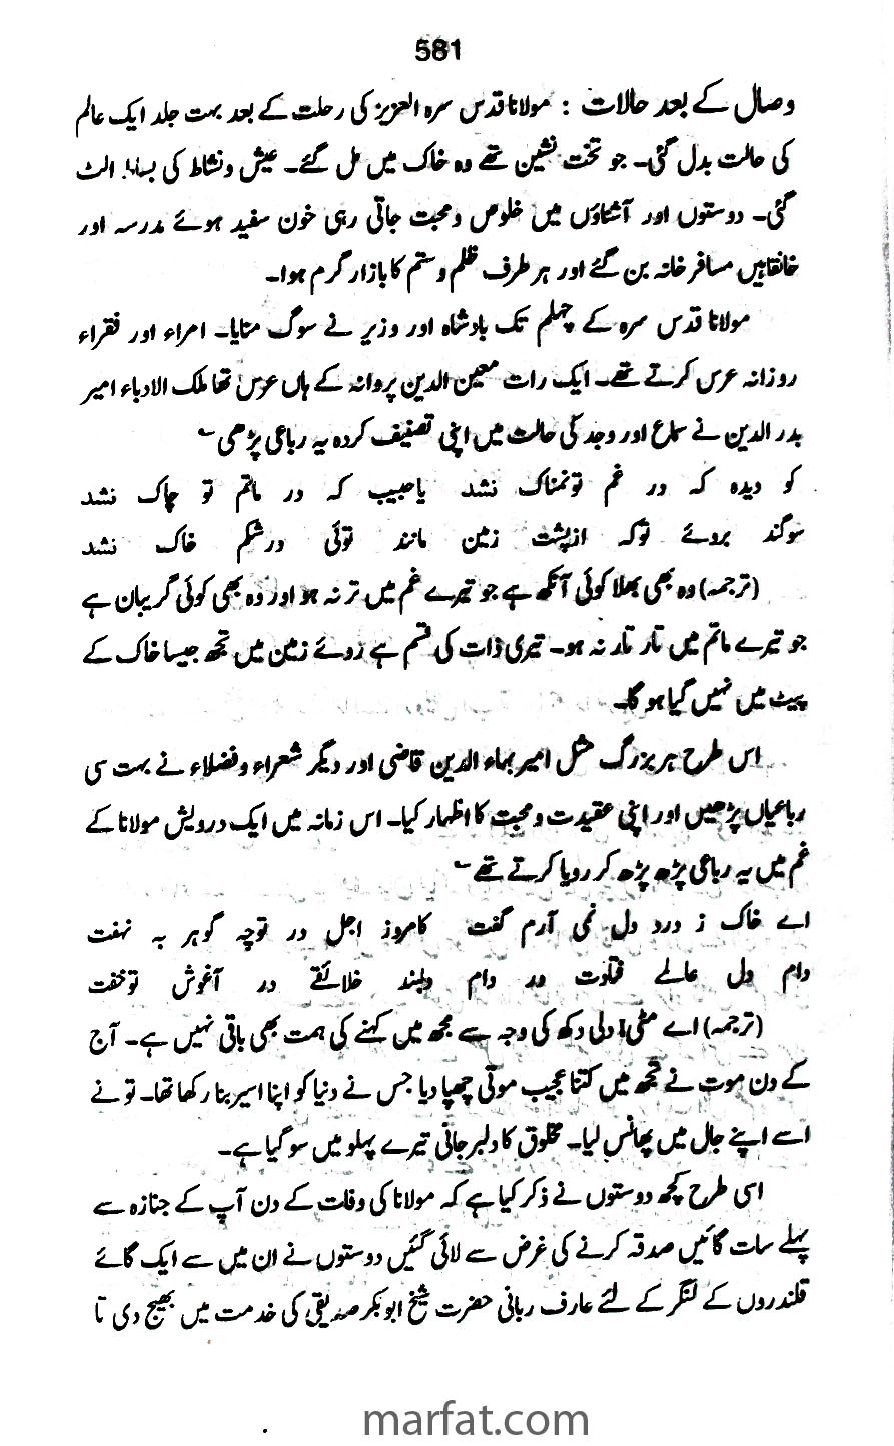 581
وصال کے بعد حالات : مولانا قدس سرہ العزیز کی رحلت کے بعد بہت جلد ایک عالم
کی حالت بدل گئی۔ جو تخت نشین تھے وہ خاک میں مل گئے۔ عیش و نشاط کی بساط الٹ
گئی۔ دوستوں اور آشناؤں میں خلوص و محبت جاتی رہی خون سفید ہوئے مدرسہ اور
خانقاہیں مسافر خانہ بن گئے اور ہر طرف ظلم و ستم کا بازار گرم ہوا۔
مولانا قدس سرہ کے چہلم تک بادشاہ اور وزیر نے سوگ منایا۔ امراء اور فقراء
روزانہ عرس کرتے تھے۔ ایک رات معین الدین پروانہ کے ہاں عرس تھا ملک الادباء امیر
بدر الدین نے سماع اور وجد کی حالت میں اپنی تصنیف کردہ یہ رباعی پڑھی ؎
کو دیدہ کہ در غم تو نمناک نشد یا حبیب کہ در ماتم تو چاک نشد
سوگند بروئے توکہ از پشت زمین مانند توئی در شکم خاک نشد
(ترجمہ) وہ بھی بھلا کوئی آنکھ ہے جو تیرے غم میں تر نہ ہو اور وہ بھی کوئی گریبان ہے
جو تیرے ماتم میں تار تار نہ ہو۔ تیری ذات کی قسم ہے روئے زمین میں تجھ جیسا خاک کے
پیٹ میں نہیں گیا ہو گا۔
اس طرح ہر بزرگ مثل امیر بہاء الدین قاضی اور دیگر شعراء و فضلاء نے بہت سی
رباعیاں پڑھیں اور اپنی عقیدت و محبت کا اظہار کیا۔ اس زمانہ میں ایک درویش مولانا کے
غم میں یہ رباعی پڑھ پڑھ کر رویا کرتے تھے ؎
اے خاک ز درد دل نمی آرم گفت کامروز اجل در توچہ گوہر بہ نہفت
دام دل عالمے فتادت در دام دلبند خلائقے در آغوش تو خفت
(ترجمہ) اے مٹی! دلی دکھ کی وجہ سے مجھ میں کہنے کی ہمت بھی باقی نہیں ہے۔ آج
کے دن موت نے تجھ میں کتنا عجیب موتی چھپا دیا جس نے دنیا کو اپنا اسیر بنا رکھا تھا۔ تو نے
اسے اپنے جال میں پھانس لیا۔ مخلوق کا دلبر جانی تیرے پہلو میں سو گیا ہے۔
اسی طرح کچھ دوستوں نے ذکر کیا ہے کہ مولانا کی وفات کے دن آپ کے جنازہ سے
پہلے سات گائیں صدقہ کرنے کی غرض سے لائی گئیں دوستوں نے ان میں سے ایک گائے
قلندروں کے لنگر کے لئے عارف ربانی حضرت شیخ ابوبکر صدیقی کی خدمت میں بھیج دی تا
marfat.com